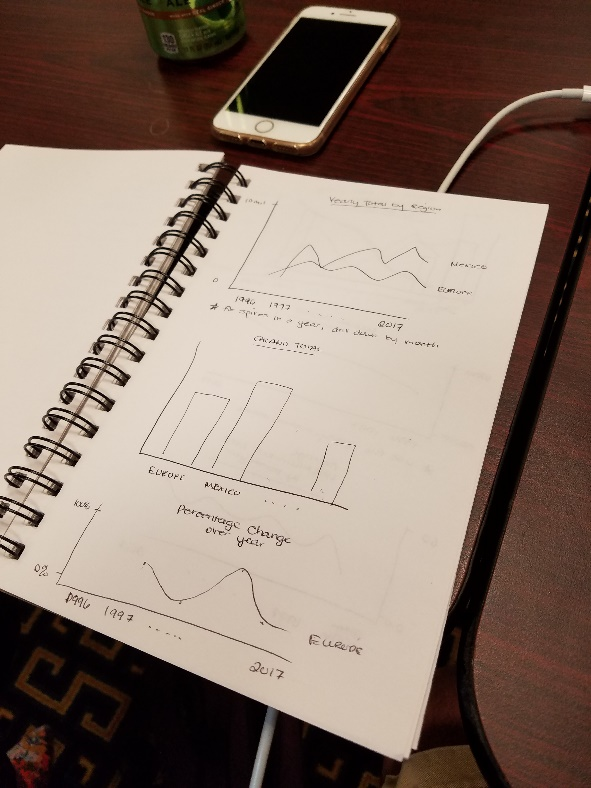 ALE
Yearly Total by Region
0
MEXICO
EUROPE
1996 1997 ..... 2017
* For spikes in a year, drill down by month
GRAND TOTAL
EUROPE MEXICO ....
Percentage Change
over year
100%
0%
1996 1997 .....
EUROPE
2017